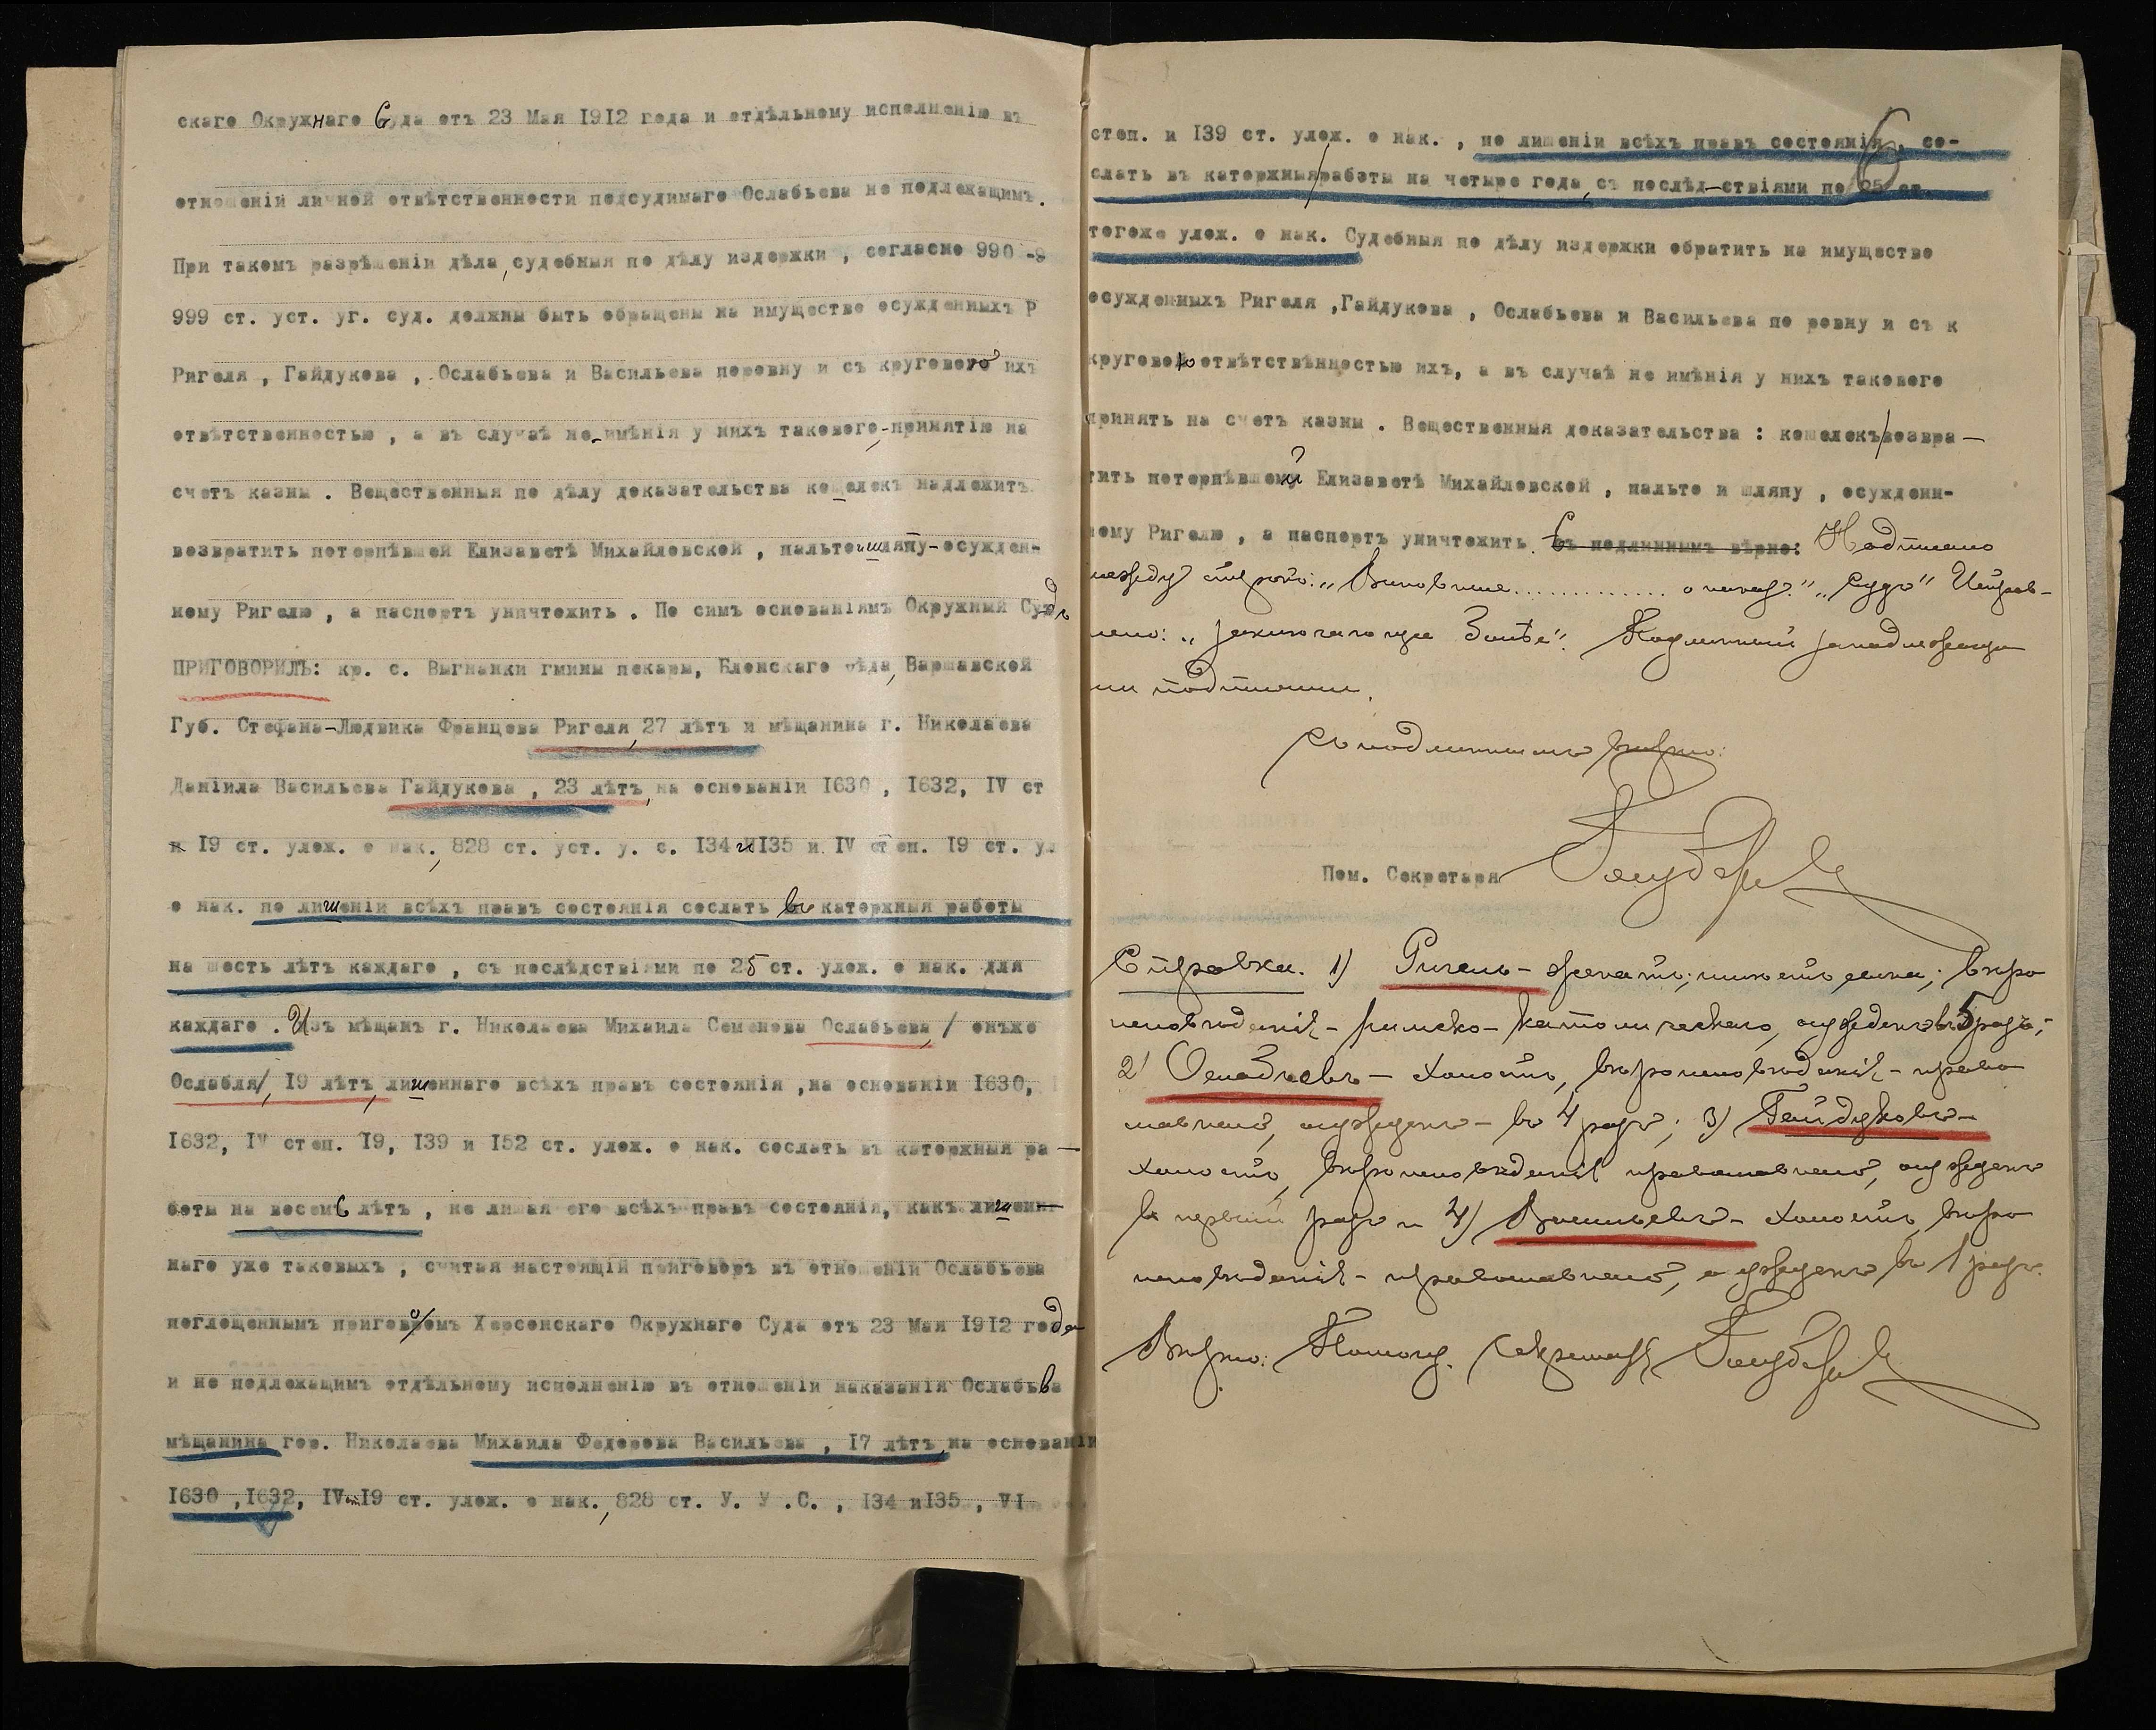 скаго Окружнаго Суда отъ 23 Мая 1912 года и отдѣльному исполненію въ
отношеній личной отвѣтственности подсудимаго Ослабьева не подлежащимъ.
При такомъ разрѣшеніи дѣла, судебныя по дѣлу издержки , согласно 990 -9
999 ст. уст. уг. суд. должны быть обращены на имущество осужденныхъ Р
Ригеля , Гайдукова , Ослабьева и Васильева поровну и съ круговою ихъ
отвѣтственностью , а въ случаѣ не-имѣнія у нихъ такового,-принятію на
счетъ казны . Вещественныя по дѣлу доказательства кошелекъ надлежитъ
возвратить потерпѣвшей Елизаветѣ Михайловской , пальто и шляпу-осужден-
ному Ригелю , а паспортъ уничтожить . По симъ основаніямъ Окружный Судъ
ПРИГОВОРИЛЪ: кр. с. Выгнанки гмины пекары, Блонскаго уѣда, Варшавской
Губ. Стефана-Людвика Францева Ригеля, 27 лѣтъ и мѣщанина г. Николаева
Даніила Васильева Гайдукова , 23 лѣтъ, на основаніи 1630 , 1632, IV ст
и 19 ст. улож. о нак., 828 ст. уст. у. с. 134 и 135 и IV степ. 19 ст. ул
о нак. по лишеніи всѣхъ правъ состоянія сослать въ катержныя работы
на шесть лѣтъ каждаго , съ послѣдствіями по 25 ст. улож. о нак. для
каждаго . Изъ мѣщанъ г. Николаева Михаила Семенова Ослабьева, / онъже
Ослабля/, 19 лѣтъ, лишеннаго всѣхъ правъ состоянія ,на основаніи 1630,
1632, IV степ. 19, 139 и 152 ст. улож. о нак. сослать въ катержныя ра-
боты на восемь лѣтъ , не лишая его всѣхъ правъ состоянія, какъ лишен-
наго уже таковыхъ , считая настоящій приговоръ въ отношеніи Ослабьева
поглощеннымъ приговоромъ Херсонскаго Окружнаго Суда отъ 23 Мая 1912 года
и не подлежащимъ отдѣльному исполненію въ отношеніи наказанія Ослабьва
мѣщанина гор. Николаева Михаила Федорова Васильева , 17 лѣтъ, на основаніи
1630 ,1632, IV ст 19 ст. улож. о нак., 828 ст. У. У .С. , 134 и 135 , VI
6
степ. и 139 ст. улож. о нак. , по лишеніи всѣхъ правъ состоянія , со-
слать въ катержныя/работы на четыре года, съ послѣд-ствіями по 25 ст.
тогоже улож. о нак. Судебныя по дѣлу издержки обратить на имущество
осужденныхъ Ригеля ,Гайдукова , Ослабьева и Васильева по ровну и съ к
круговою отвѣтствѣнностью ихъ, а въ случаѣ не имѣнія у нихъ такового
принять на счетъ казны . Вещественныя доказательства : кошелекъ/возвра-
тить потерпѣвшей Елизаветѣ Михайловской , пальто и шляпу , осужденн-
ному Ригелю , а паспортъ уничтожить. Съ подлиннымъ вѣрно: Надписано
между строкъ: „Виновные............. о наказ." „Судъ" Исправ-
лено: „ Подлинный за надлежащи
ми подписями.
Съ подлиннымъ вѣрно:
Пом. Секретаря
Справка. 1) Ригель - женатъ; вѣро
исповѣданія - римско-католическаго, осужденъ въ 5 разъ;-
2) Ослабьевъ - холостъ, вѣроисповѣданія - право
славнаго, осужденъ - въ 4 разъ; 3) Гайдуковъ -
холостъ, вѣроисповѣданія православнаго, осужденъ
въ первый разъ и 4) Васильевъ - холостъ, вѣро
исповѣданія - православнаго, осужденъ въ 1 разъ.
Вѣрно: Помощ. Секретаря